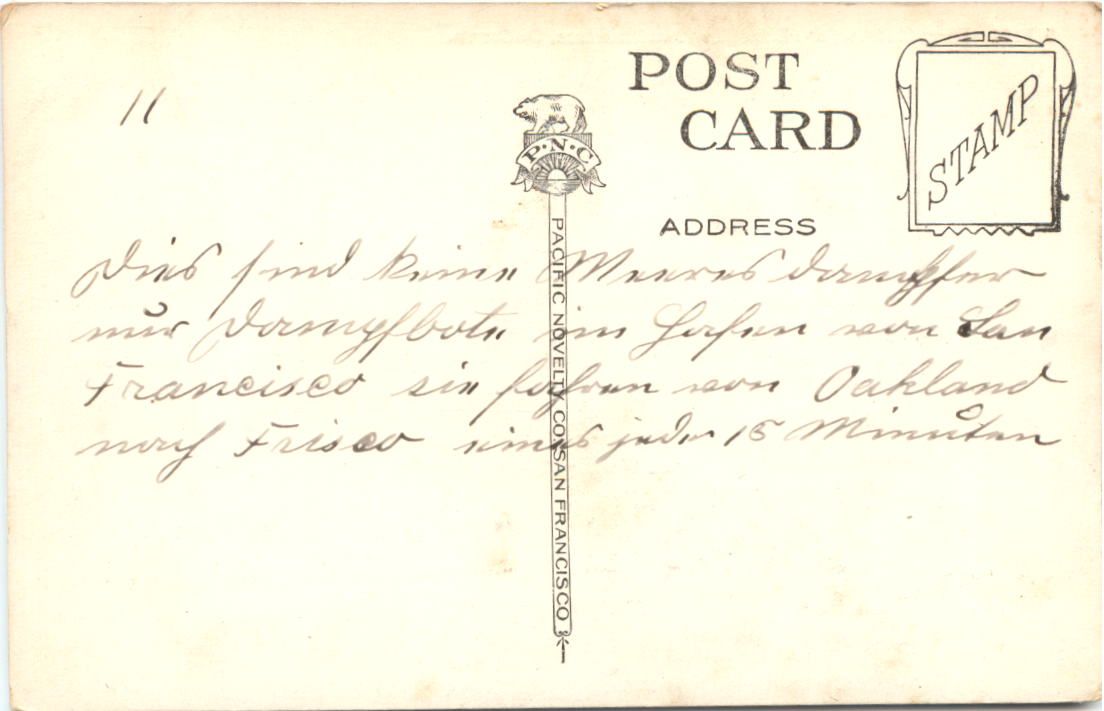 11
POST
CARD
STAMP
P·N·C
ADDRESS
PACIFIC NOVELTY CO. SAN FRANCISCO
Dies sind keine Meeresdampfer
nur Dampfbote im Hafen von San
Francisco sie fahren von Oakland
nach Frisco eines jede 15 Minuten